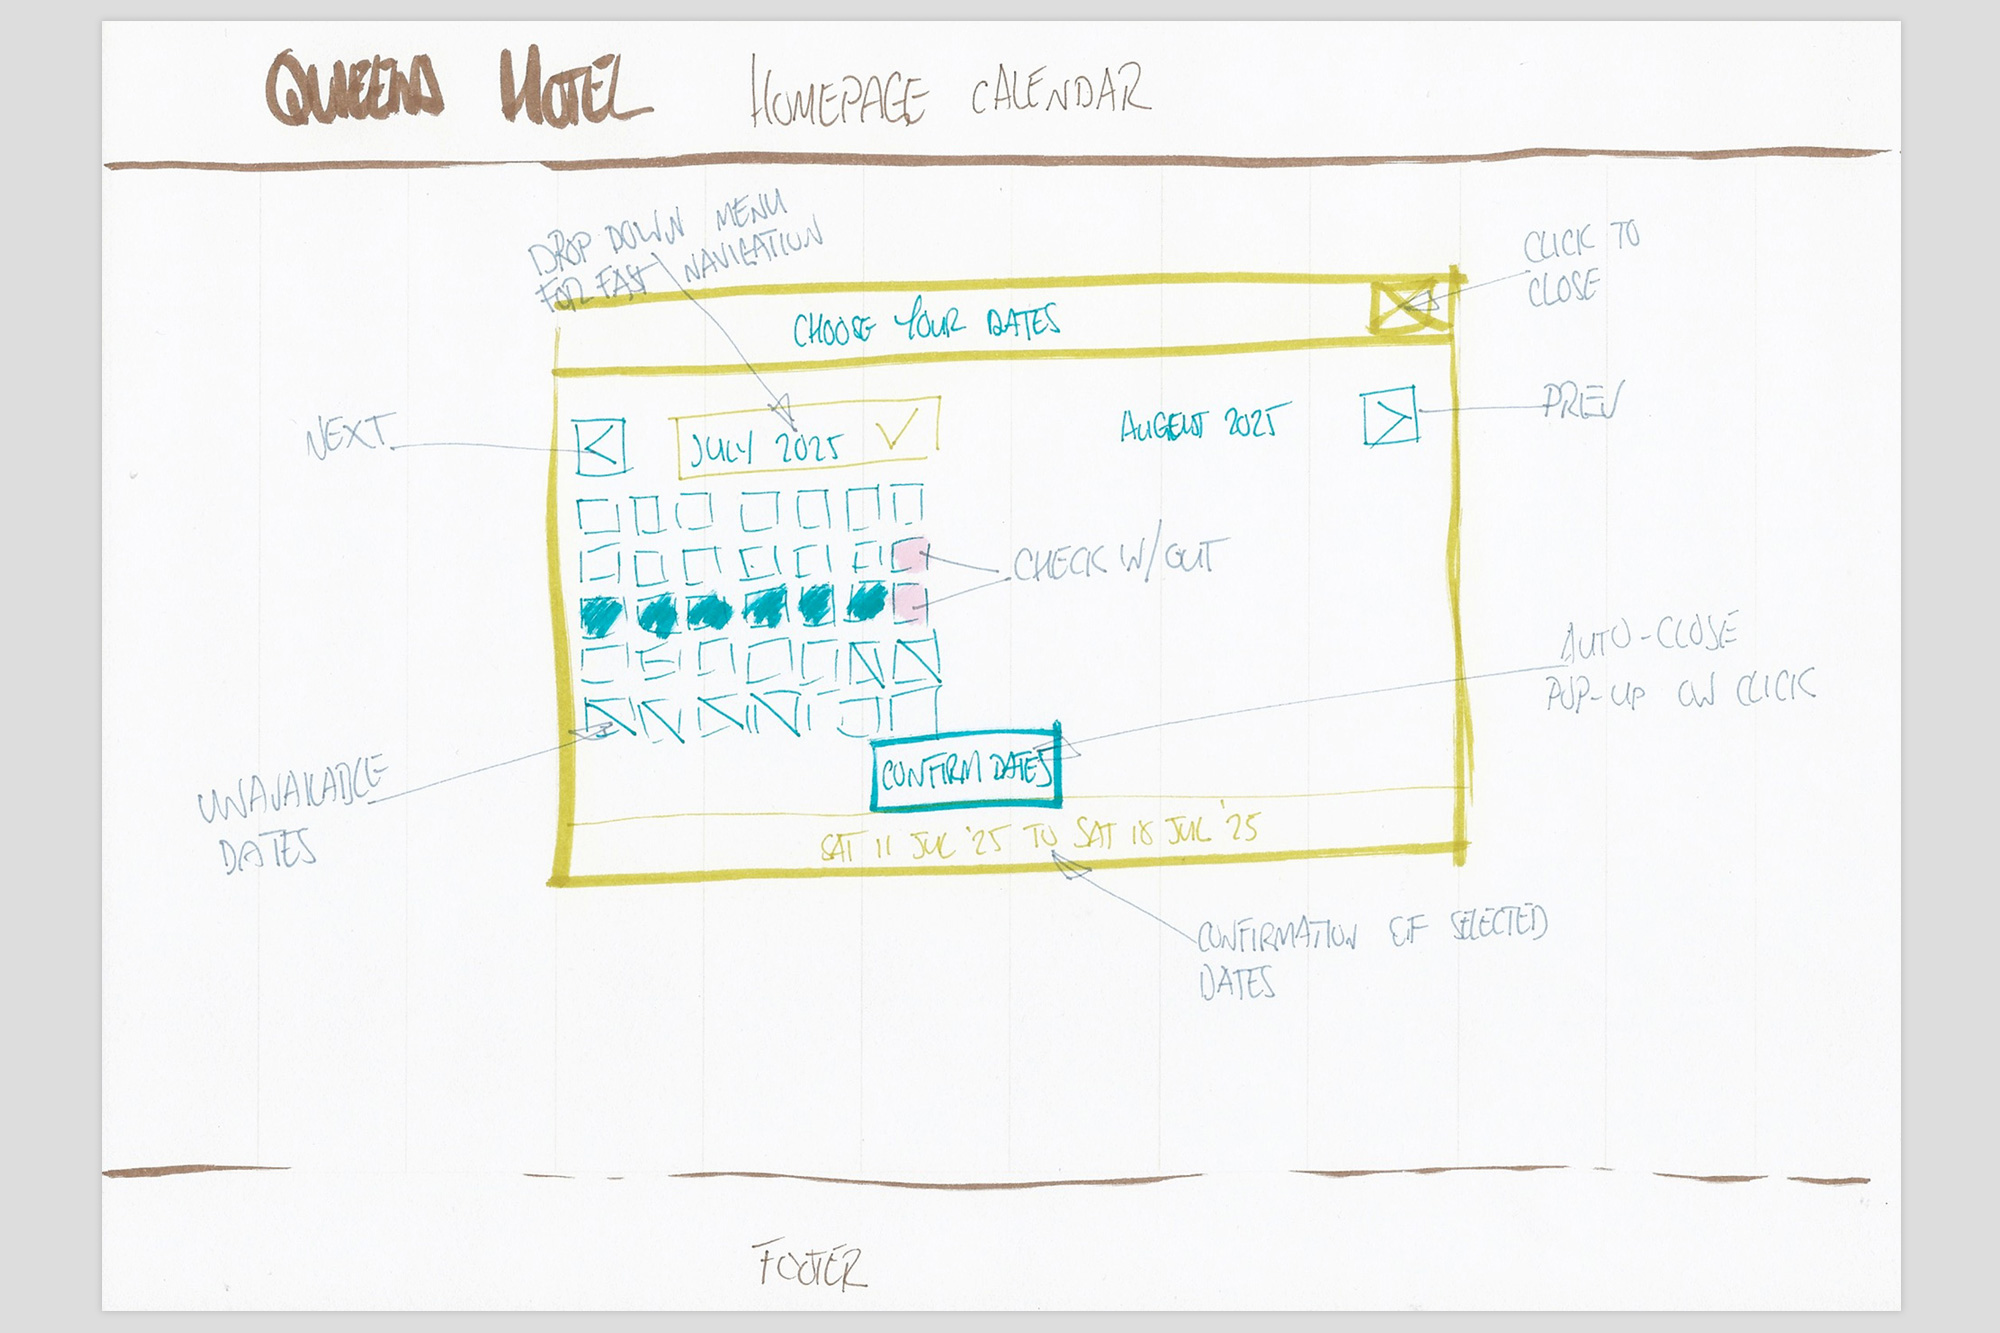 QUEENS HOTEL HOMEPAGE CALENDAR
DROP DOWN MENU
FOR FAST NAVIGATION
CLICK TO
CLOSE
CHOOSE YOUR DATES
NEXT
<
JULY 2025
AUGUST 2025
>
PREV
CHECK IN/OUT
AUTO-CLOSE
POP-UP ON CLICK
UNAVAILABLE
DATES
CONFIRM DATES
SAT 11 JUL '25 TO SAT 18 JUL '25
CONFIRMATION OF SELECTED
DATES
FOOTER